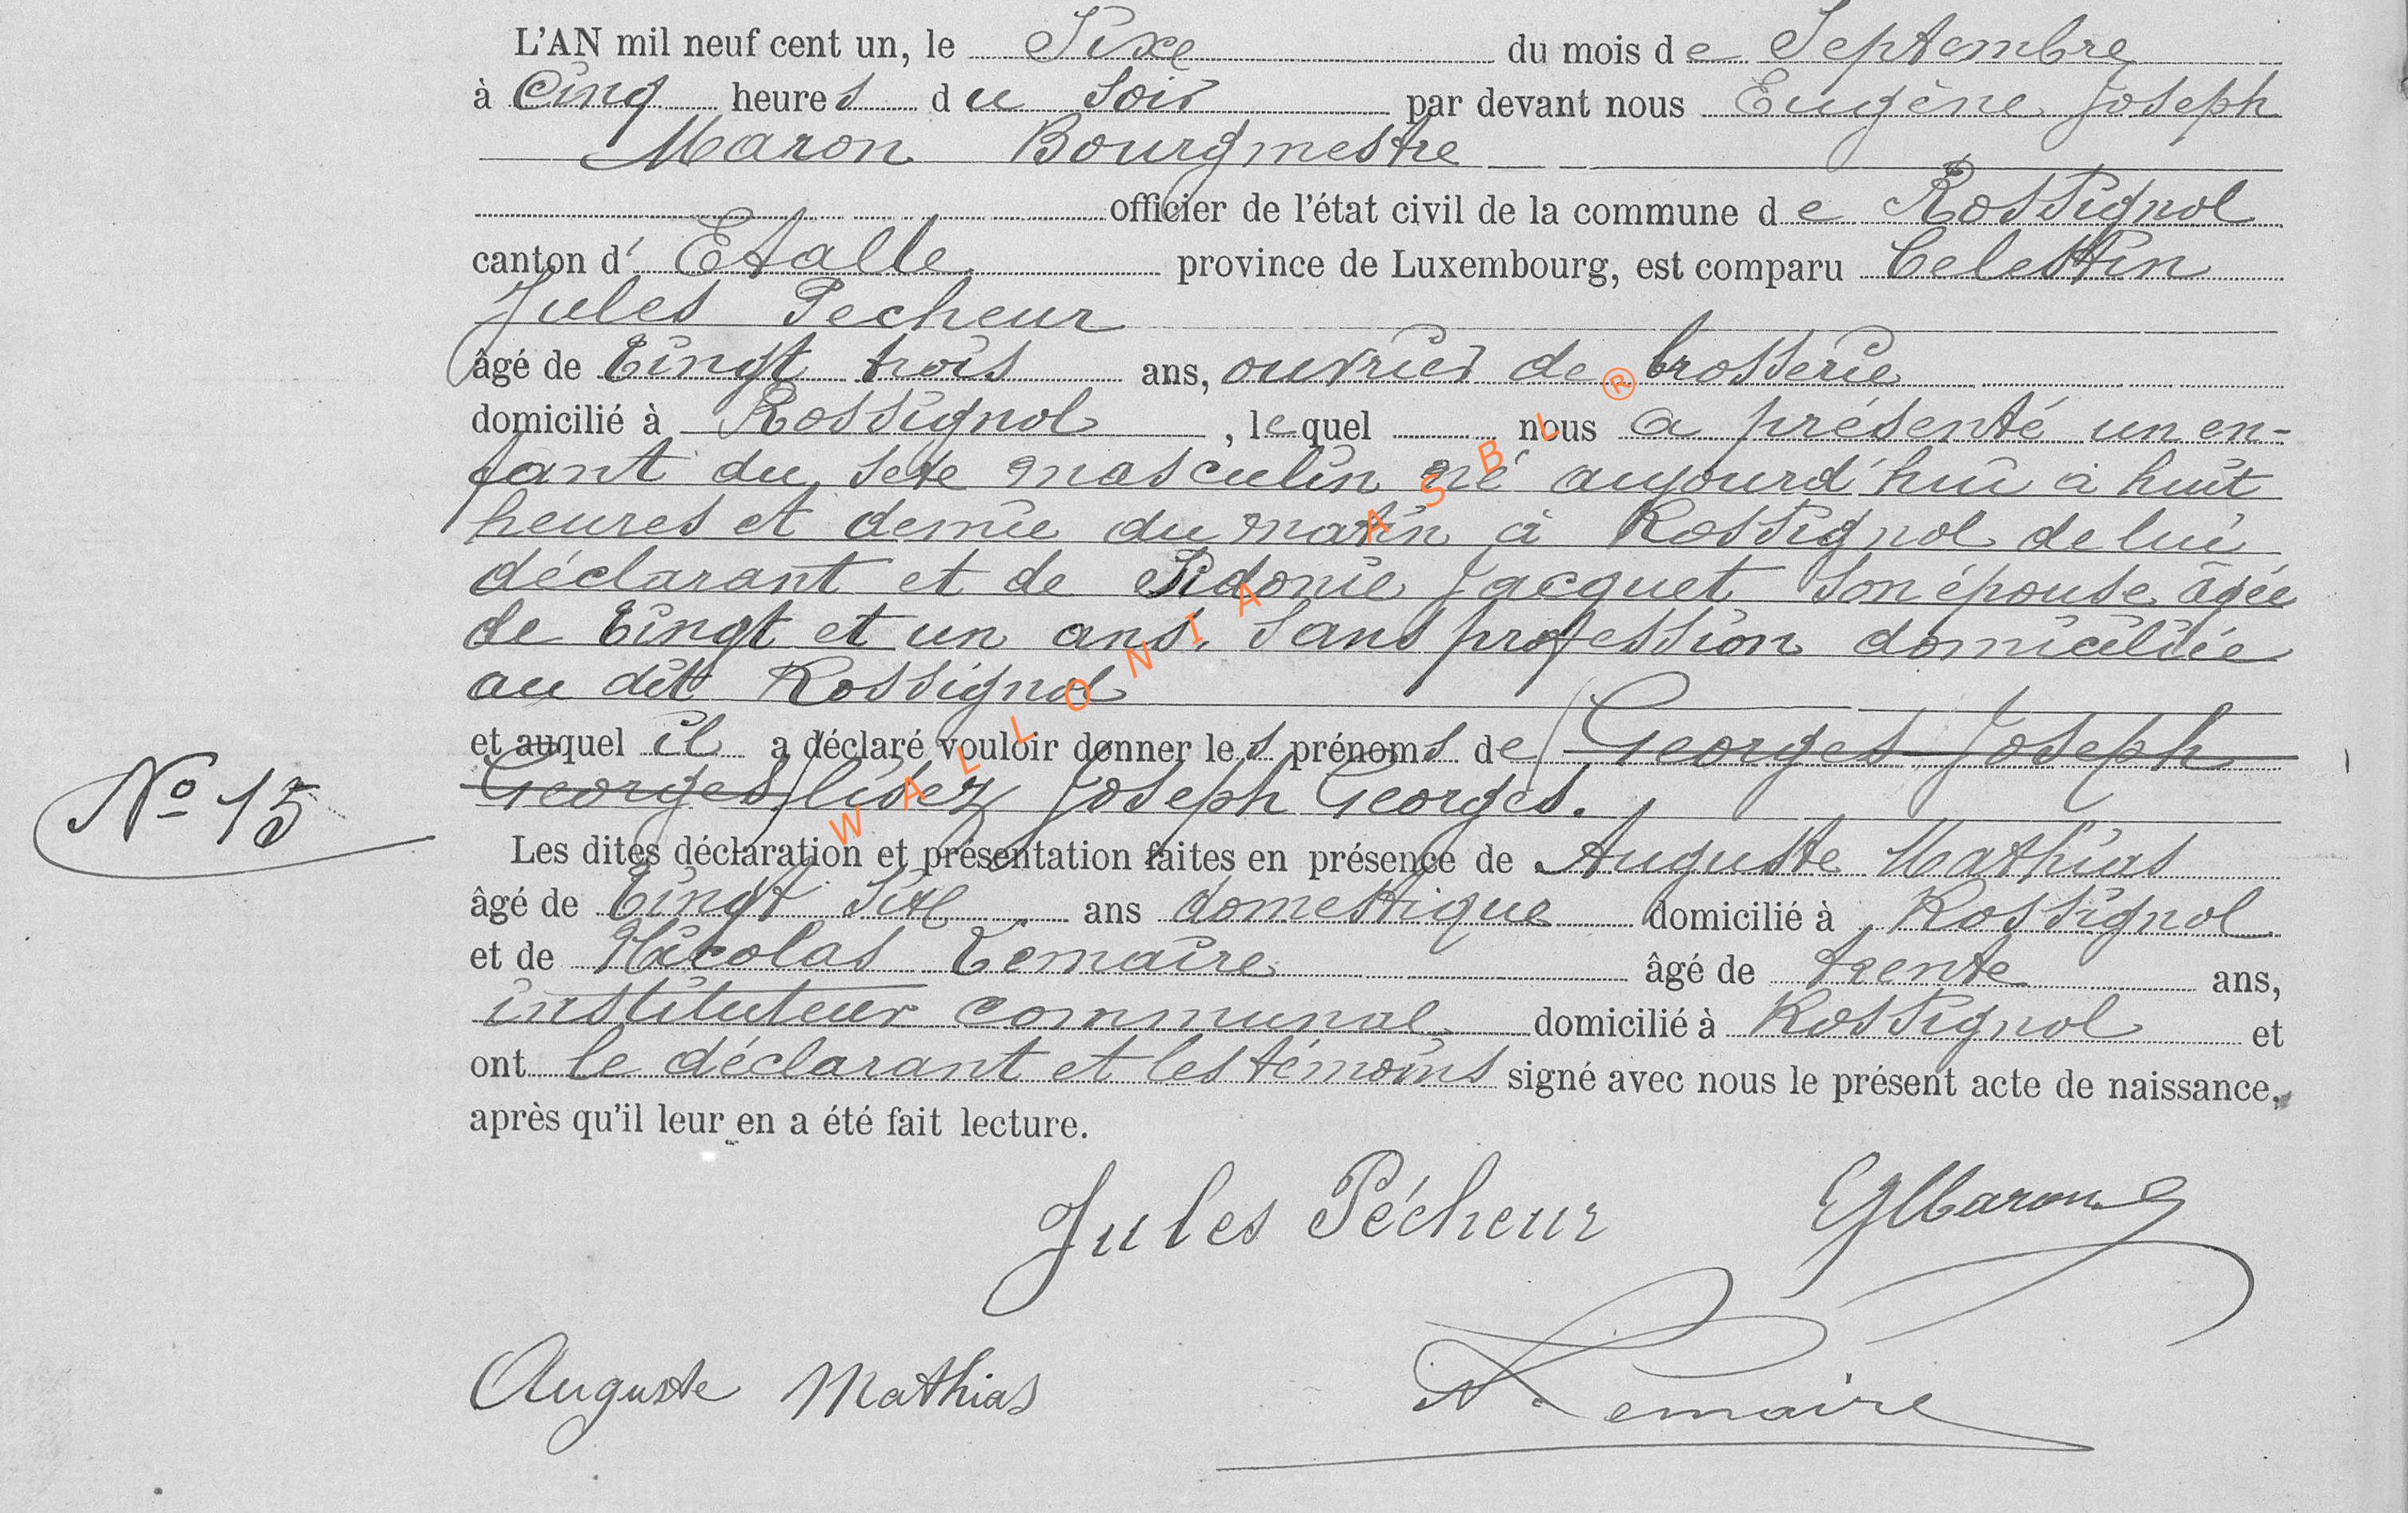 L'AN mil neuf cent un, le Sixe du mois de Septembre
à Cinq heures du Soir par devant nous Eugène Joseph
Maron Bourgmestre
officier de l'état civil de la commune de Rossignol
canton d' Etalle province de Luxembourg, est comparu Celestin
Jules Pecheur
âgé de Vingt trois ans, ouvrier de brosserie
domicilié à Rossignol, lequel nous a présenté un en-
fant du sexe masculin né aujourd'hui à huit
heures et demie du matin à Rossignol de lui
déclarant et de Sidonie Jacquet son épouse âgée
de Vingt et un ans. Sans profession domiciliée
au dit Rossignol
et auquel il a déclaré vouloir donner les prénoms de Georges Joseph
Georges lisez Joseph Georges.
Nº 15
Les dites déclaration et présentation faites en présence de Auguste Mathias
âgé de Vingt Six ans domestique domicilié à Rossignol
et de Nicolas Lemaire âgé de trente ans,
instituteur communal domicilié à Rossignol et
ont le déclarant et les témoins signé avec nous le présent acte de naissance,
après qu'il leur en a été fait lecture.
Jules Pécheur EJMaron
Auguste Mathias N. Lemaire
WALLONIA ASBL ®